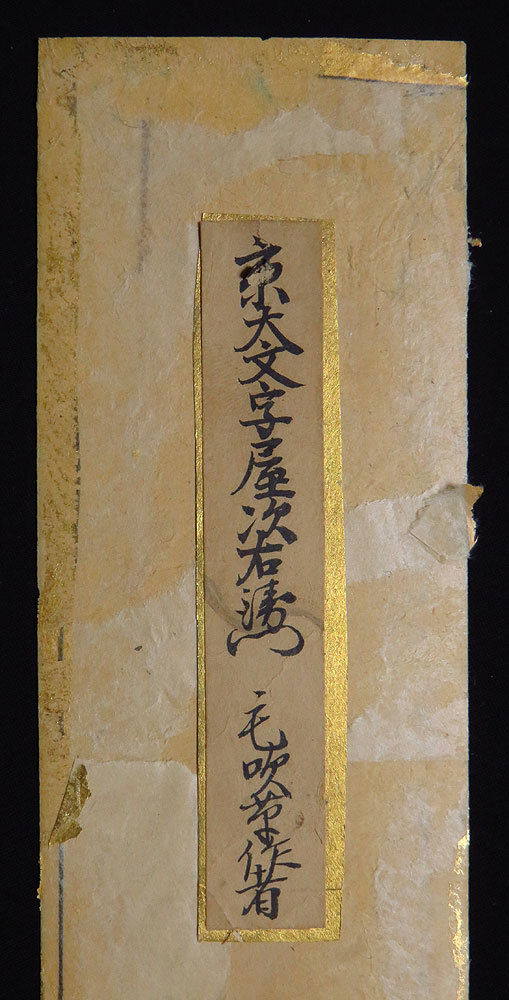 京大文字屋次右衛門　毛吹草作者